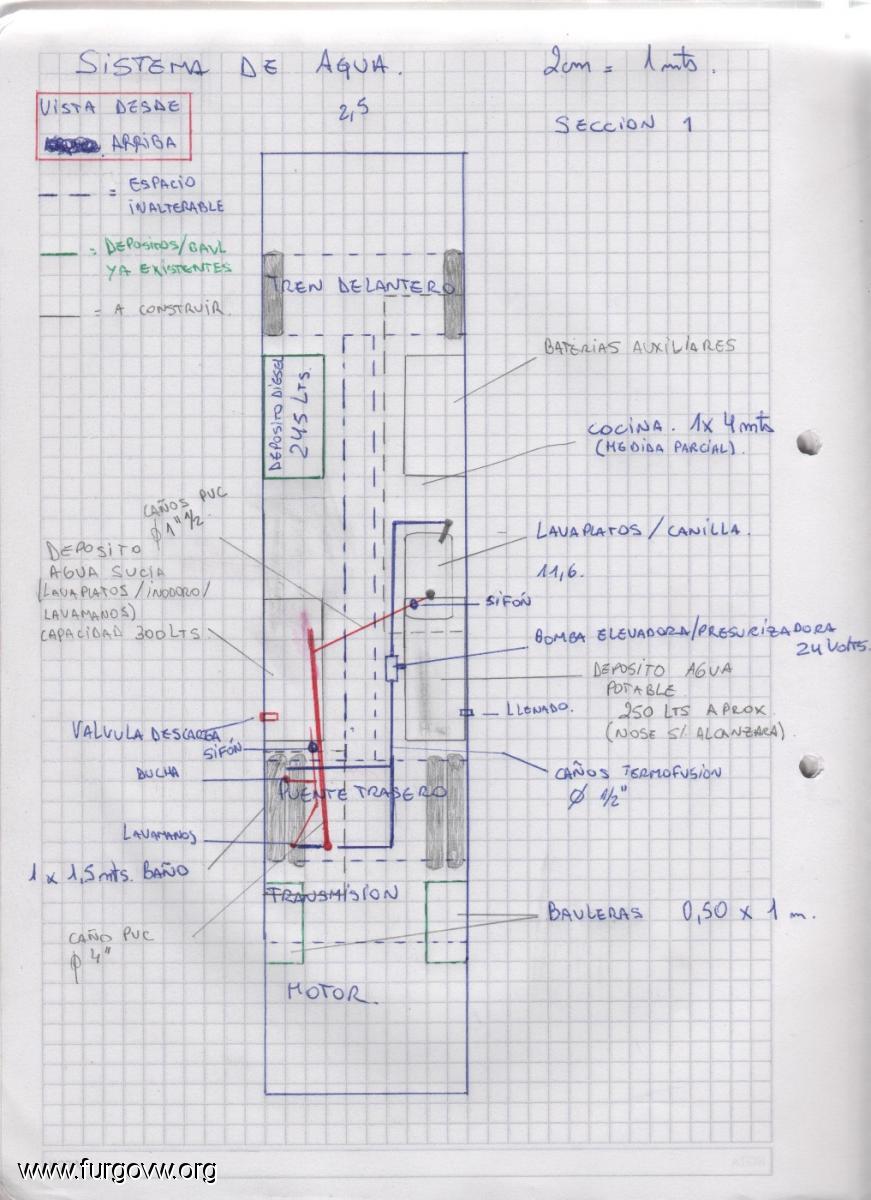 SISTEMA DE AGUA.
2cm = 1 mts.
VISTA DESDE
ARRIBA
2,5
SECCION 1
= ESPACIO
INALTERABLE
= DEPOSITOS/BAUL
YA EXISTENTES
= A CONSTRUIR.
TREN DELANTERO
BATERIAS AUXILIARES
DEPOSITO DIESEL
245 LTS.
COCINA. 1x4 mts
(MEDIDA PARCIAL).
CAÑOS PVC
φ 1" 1/2.
LAVAPLATOS / CANILLA.
DEPOSITO
AGUA SUCIA
(LAVAPLATOS/INODORO/
LAVAMANOS)
CAPACIDAD 300 LTS
11,6.
SIFÓN
BOMBA ELEVADORA/PRESURIZADORA
24 VOLTS.
DEPOSITO AGUA
POTABLE
250 LTS APROX.
(NOSE SI ALCANZARA).
LLENADO.
VALVULA DESCARGA
SIFÓN
DUCHA
CAÑOS TERMOFUSION
φ 1/2"
PUENTE TRASERO
LAVAMANOS
1 x 1,5 mts. BAÑO
TRANSMISION
BAULERAS 0,50 x 1 m.
CAÑO PVC
φ 4"
MOTOR.
www.furgovw.org